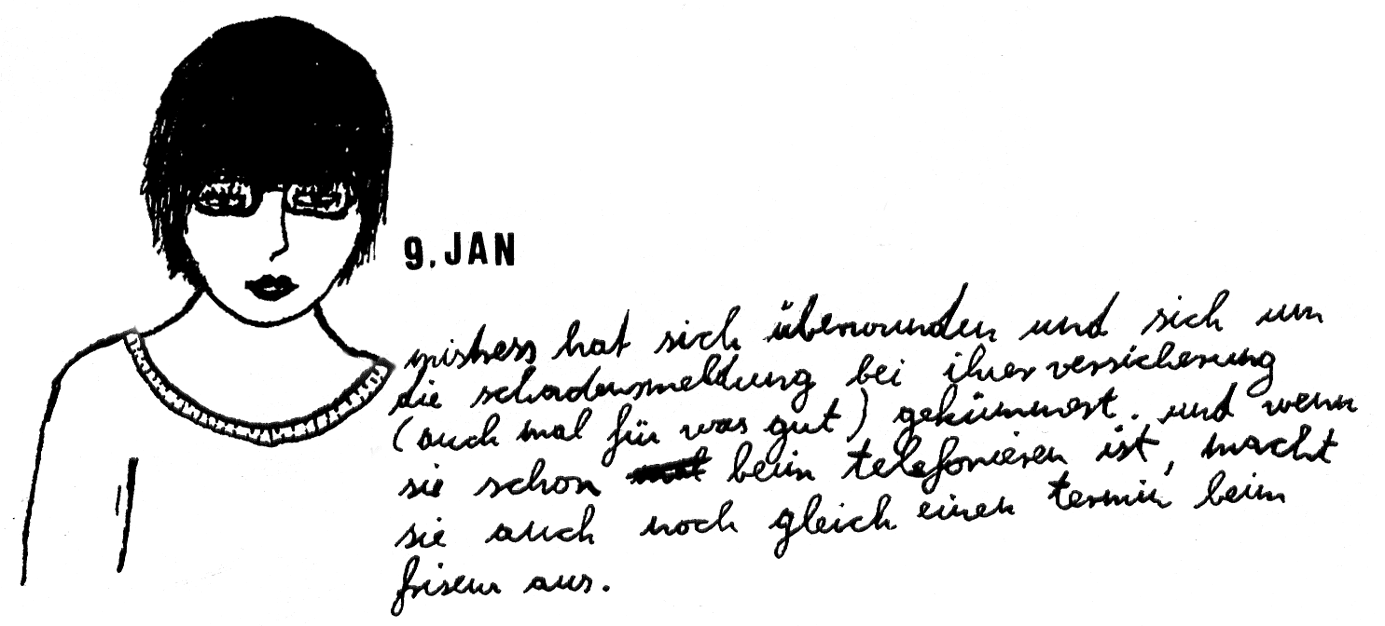 9. JAN
mistress hat sich überwunden und sich um
die schadensmeldung bei ihrer versicherung
(auch mal für was gut) gekümmert. und wenn
sie schon beim telefonieren ist, macht
sie auch noch gleich einen termin beim
friseur aus.